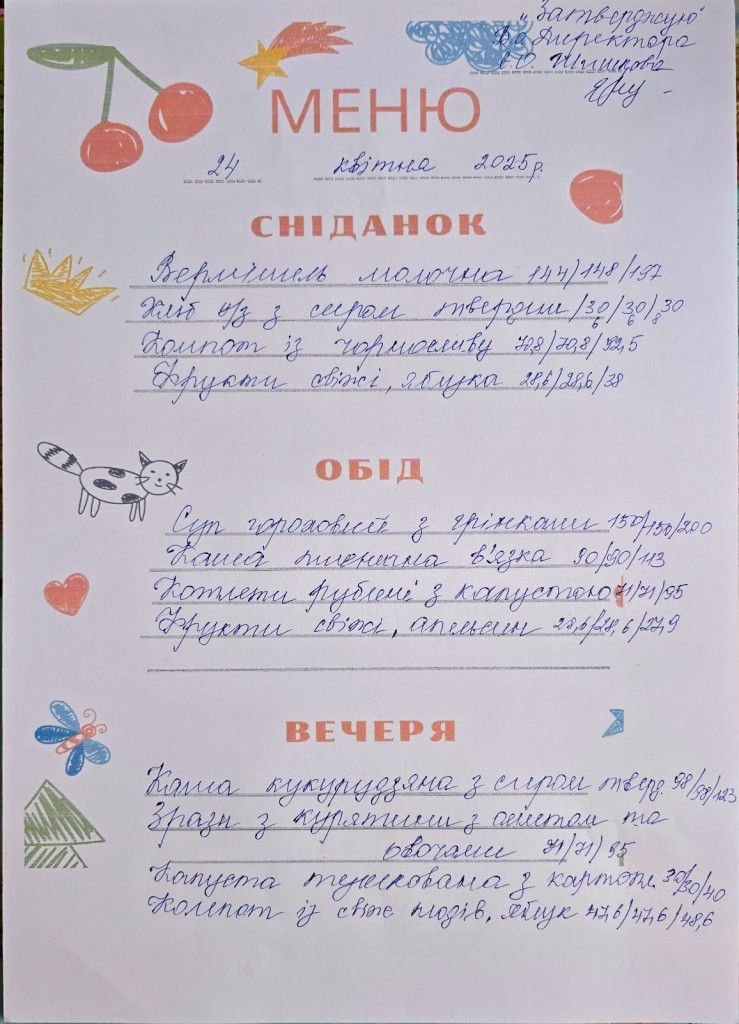 „Затверджую"
В.о. Директора
Є.О. Шишкова
МЕНЮ
24 квітня 2025р.
СНІДАНОК
Вермішель молочна 144/148/197
Хліб п/з з сиром твердим /30/30/30
6 6 8
Компот із чорносливу 70,8/70,8/92,5
Фрукти свіжі, яблука 28,6/28,6/38
ОБІД
Суп гороховий з грінками 150/150/200
Каша пшенична в'язка 90/90/113
Котлети рублені з капустою 71/71/95
Фрукти свіжі, апельсин 28,6/28,6/27,9
ВЕЧЕРЯ
Каша кукурудзяна з сиром тверд. 98/98/123
Зрази з курятини з омлетом та
овочами 71/71/95
Капуста тушкована з картопл. 30/30/40
Компот із свіж плодів, яблук 47,6/47,6/48,6